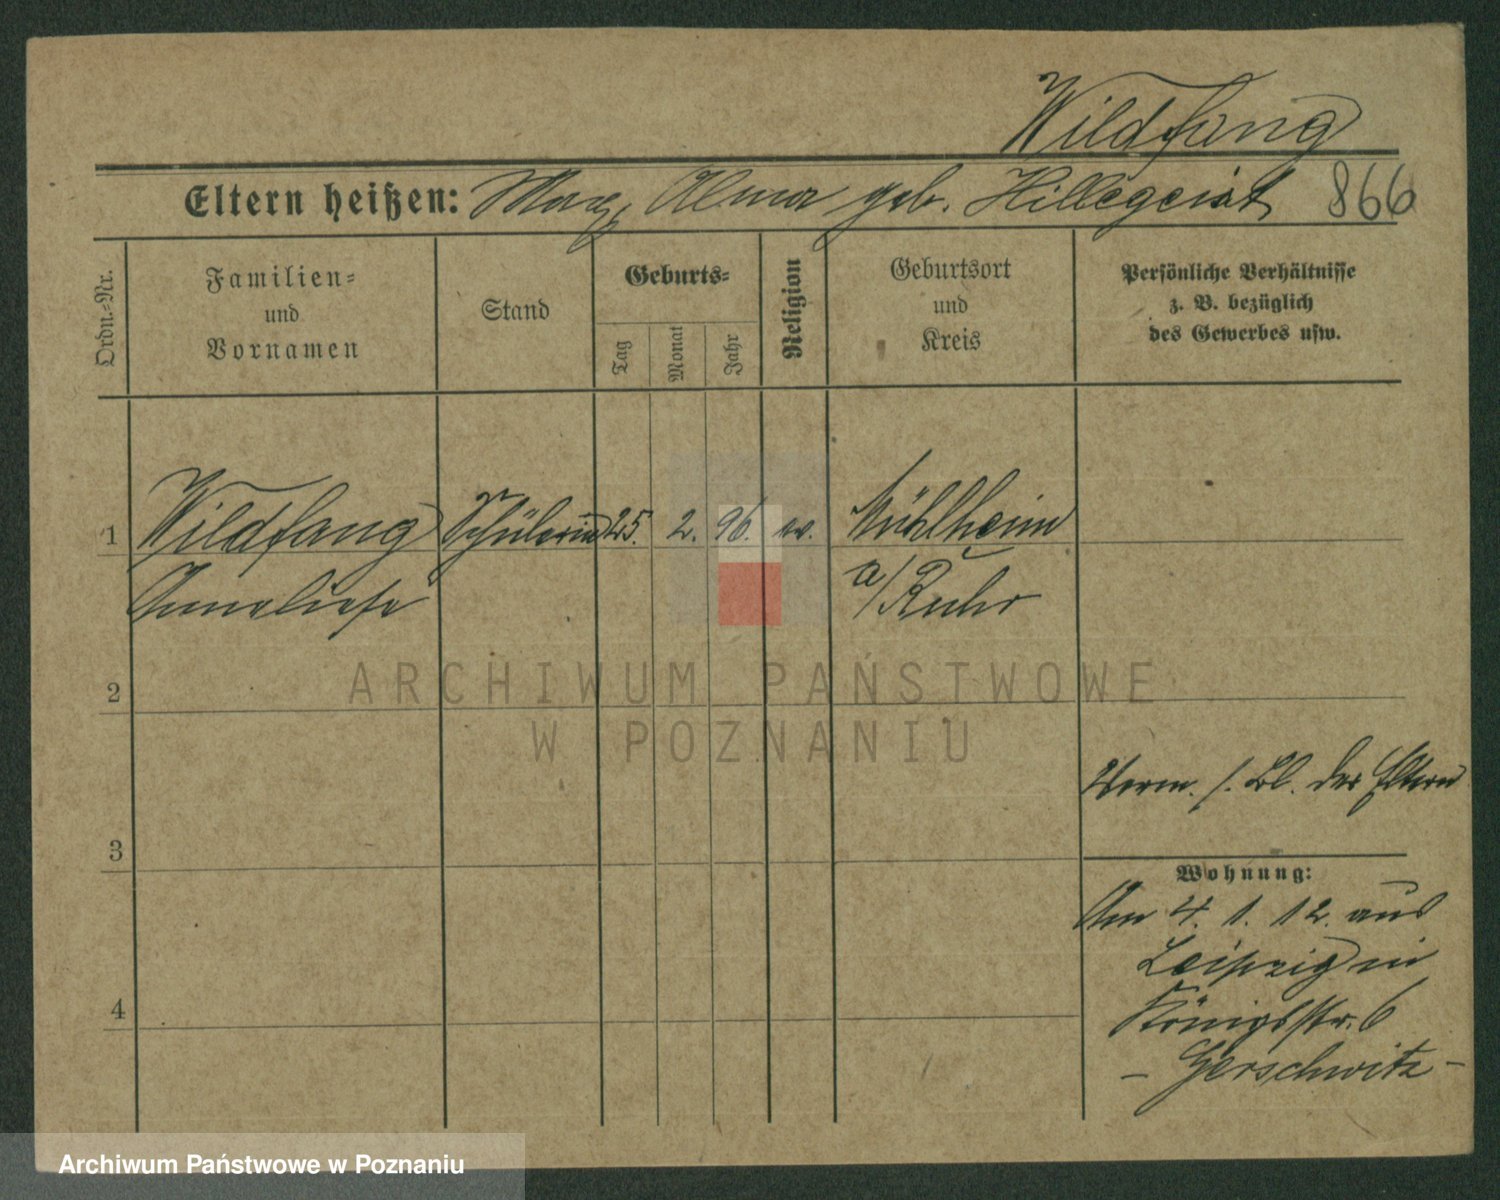 Wildfang
Eltern heißen: Max, Alma geb. Hillegeist 866
Ordn.-Nr.
Familien-
und
Vornamen
Stand
Geburts-
Tag
Monat
Jahr
Religion
Geburtsort
und
Kreis
Persönliche Verhältnisse
z. B. bezüglich
des Gewerbes usw.
1 Wildfang Schülerin 25. 2. 96. ev. Mühlheim
Anneliese a/Ruhr
2
Verm. s. Bl. der Eltern
3
Wohnung:
Am 4. 1. 12. aus
Leipzig in
Königsstr. 6
4
- Gerschwitz -
ARCHIWUM PAŃSTWOWE
W POZNANIU
Archiwum Państwowe w Poznaniu